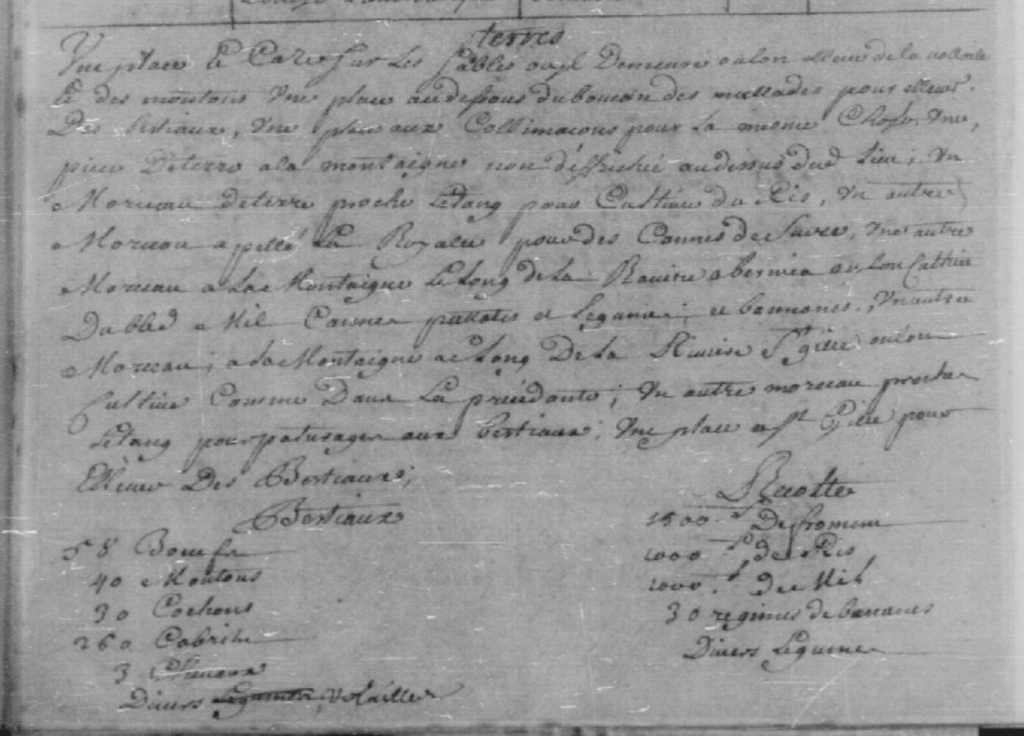 terres
Une place Et Care sur Les Sables ou jl Demeure ou lon elleue de la vollaile
Et des moutons Une place au dessous du boucan des mallades pour elleuer
Des bestiaux, Une place aux Collimacons pour La mesme Chose, Une,
piece De terre a la montaigne non deffriché au dessus dud Lieu; Un
Morceau de terre proche Letang pour Cultiuer du Ris, Un autre
Morceau apellé La Royalle pour des Cannes de Sucre, Une autre
Morceau a La Montaigne Le Long de La Rauine a bernica ou Lon Cultiue
Du bled Mil Cannes patattes et Legumes; et bannanes. Un autre
Morceau; a La Montaigne Le Long De La Riuiere St gille ou lon
Cultiue Comme Dans La precedante; Un autre morceau proche
Letang pour paturages aux bestiaux; Une place a St Gille pour
Elleuer Des Bestiaux;
Bestiaux
58 Boeufs
40 Moutons
30 Cochons
260 Cabrits
3 Cheuaux
Diuers Legumes, Volailles
Recolte
1500 De froment
1000 de Ris
1000 de Mil
30 regimes de bananes
Diuers Legumes